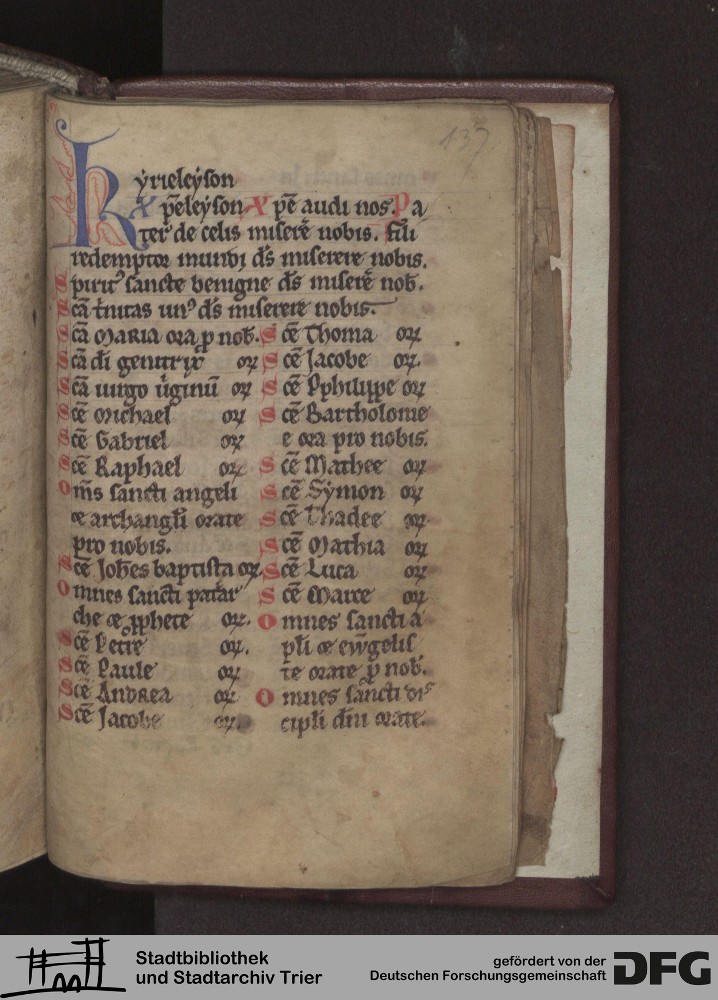 137
Kẏrieleẏson
xp̄eleẏson xp̄e audi nos. Pa
ter de celis miserē nobis. Fili
redemptor mundi ds̄ miserere nobis.
Spirit᷒ sancte benigne ds̄ miserē nob̄.
Scā t̄nitas un᷒ ds̄ miserere nobis.
Scā MARIA ora p nob̄.
Scā di genitrix oꝝ
Scā uirgo ūginū oꝝ
Scē Michael oꝝ
Scē Gabriel oꝝ
Scē Raphael oꝝ
Oms̄ sancti angeli
⁊ archangli orate
pro nobis.
Scē Joh̄es baptista oꝝ
Omnes sancti patriar
che ⁊ pphete oꝝ.
Scē Petre oꝝ.
Scē Paule oꝝ
Scē Andrea oꝝ
Scē Jacobe oꝝ
Scē Thoma oꝝ
Scē Jacobe oꝝ
Scē Pphilippe oꝝ
Scē Bartholome
e ora pro nobis.
Scē Mathee oꝝ
Scē Sẏmon oꝝ
Scē Thadee oꝝ
Scē Mathia oꝝ
Scē Luca oꝝ
Scē Marce oꝝ
Omnes sancti a
pli ⁊ ewgelis
te orate p nob̄.
Omnes sancti dis
cipli dni orate.
Stadtbibliothek
und Stadtarchiv Trier
gefördert von der
Deutschen Forschungsgemeinschaft
DFG